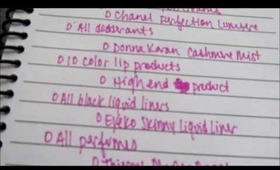 O Chanel Perfection Lumiere
O All deoderants
O Donna Karan Cashmere Mist
O 10 color lip products
O High end product
O All black liquid liners
O Eyeko Skinny liquid liner
O All perfumes
O Thierry